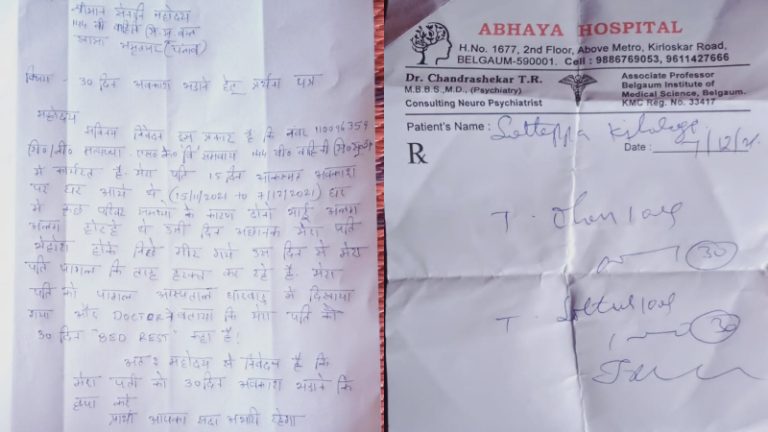 श्रीमान सेनानी महोदय
144 वी वाहिनी
खासा अमृतसर (पंजाब)
विषय - 30 दिन अवकाश बढाने हेतु प्रार्थना पत्र
महोदय
सविनय निवेदन इस प्रकार है कि नंबर 110096359
144 वी० वाहिनी
मे कार्यरत है. मेरा पति 15 दिन आकस्मिक अवकाश
पर घर आये थे (15/11/2021 to 7/12/2021) घर
मे कुछ के कारण दोनो भाई अलग
अलग होरहे थे उसी दिन अचानक मेरा पति
बेहोश होके निचे गीर गये उस दिन से मेरा
पति पागल कि तरह हरकत कर रहे है. मेरा
पति को पागल अस्पताल धारवाड़ मे दिखाया
गया और DOCTOR ने बताया कि मेरा पति को
30 दिन "BED REST" कहा है!
अतः महोदय से निवेदन है कि
मेरा पती को 30 दिन अवकाश बढाने कि
कृपा करे
प्रार्थी आपका सदा आभारी रहेगा
ABHAYA HOSPITAL
H.No. 1677, 2nd Floor, Above Metro, Kirloskar Road,
BELGAUM-590001. Cell : 9886769053, 9611427666
Dr. Chandrashekar T.R.
M.B.B.S.,M.D., (Psychiatry)
Consulting Neuro Psychiatrist
Associate Professor
Belgaum Institute of
Medical Science, Belgaum.
KMC Reg. No. 33417
Patient's Name :
Date : 7/12/21
℞
T.
30
T.
30